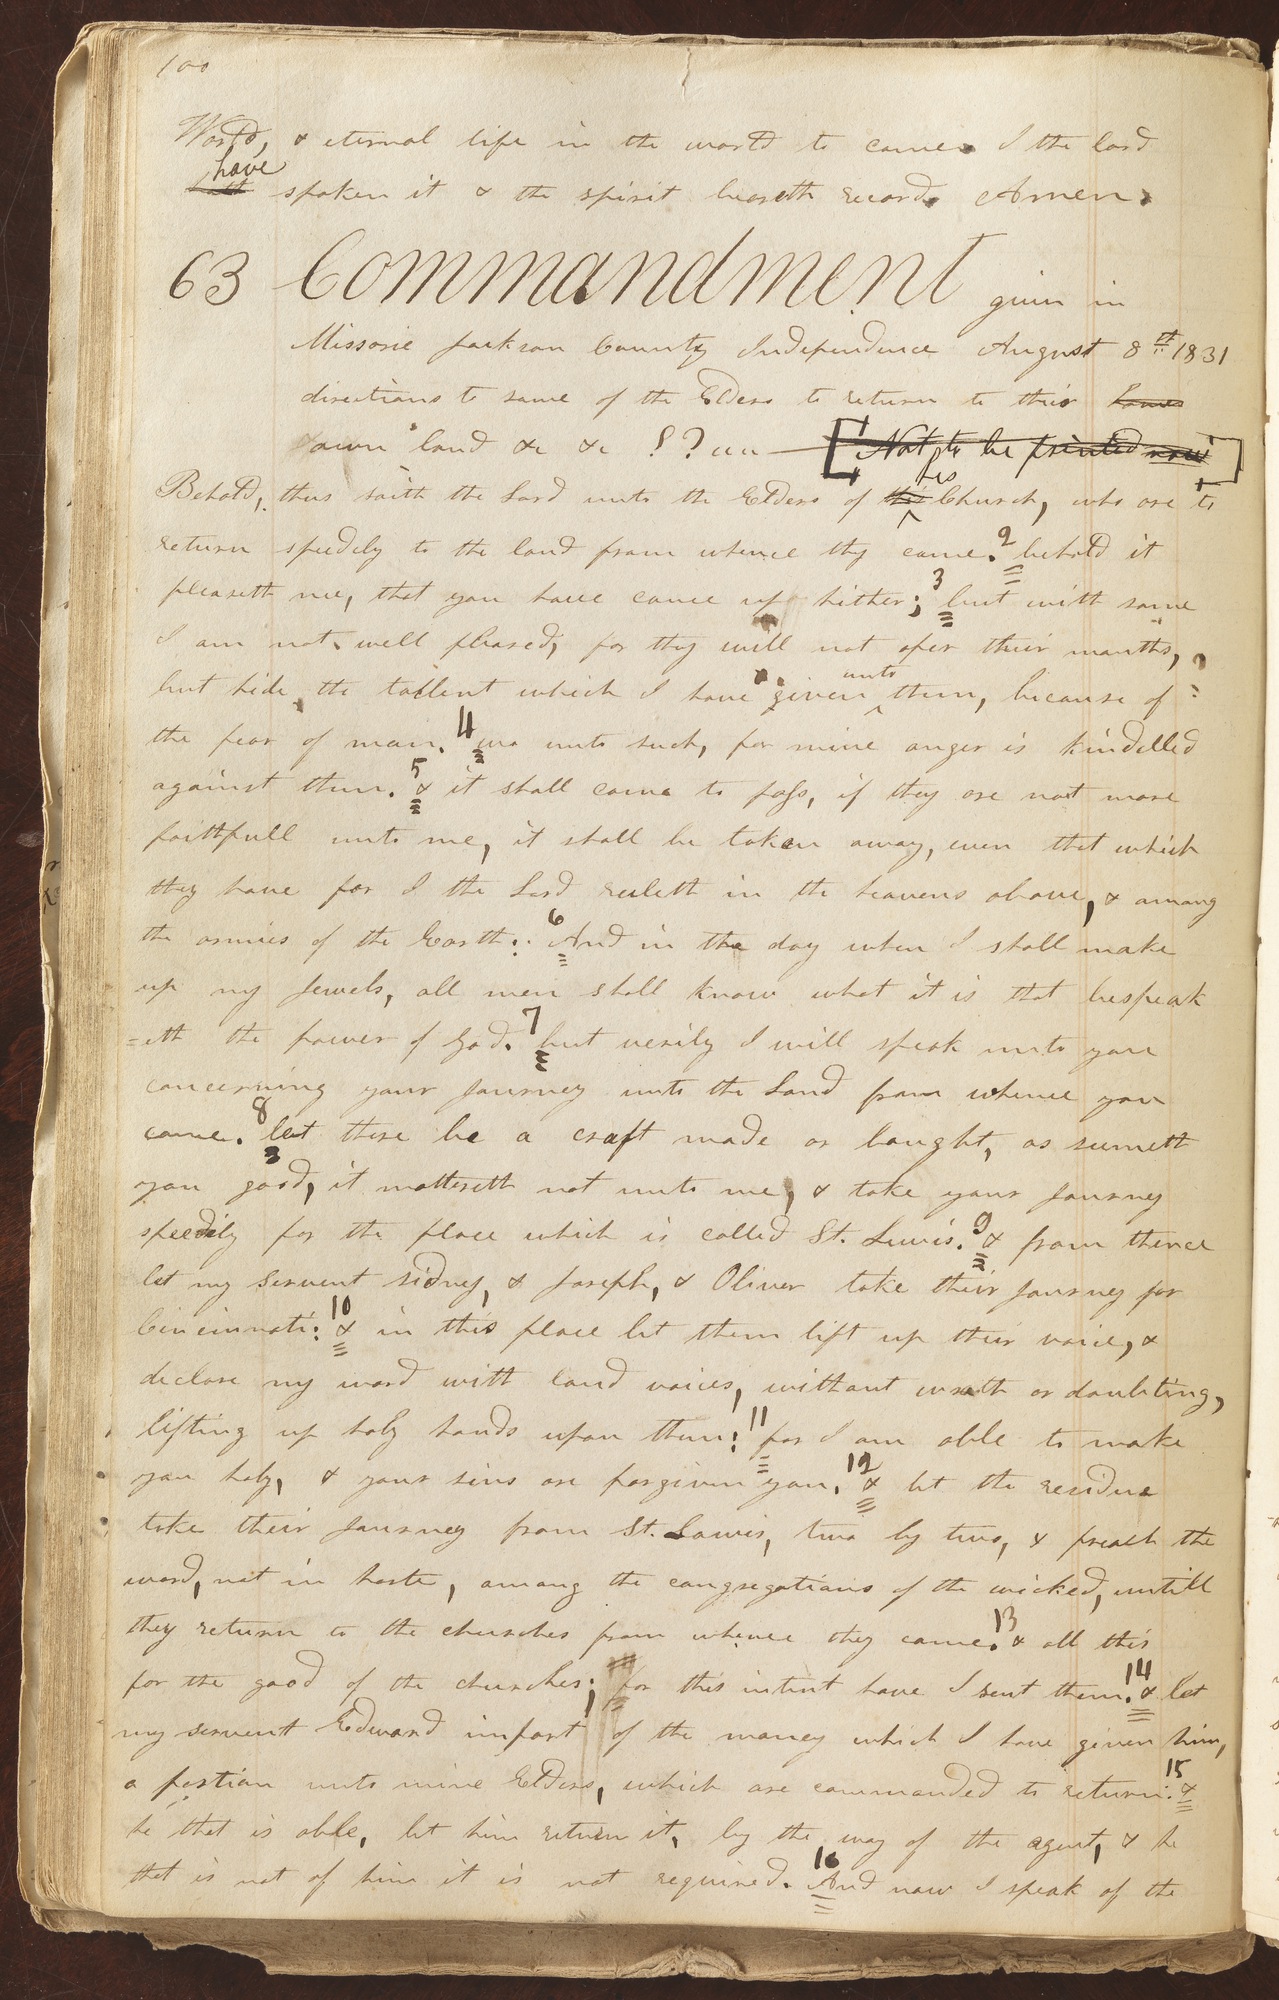 100
World, & eternal life in the world to come I the lord
have
hath spoken it & the spirit beareth record. Amen.
63 Commandment given in
Missorie Jackson County Independence August 8th 1831
directions to some of the Elders to return to their
own land &c &c [Not to be printed now]
Behold, thus saith the Lord unto the Elders of this his Church, who are to
return speedily to the land from whence thy came. 2 behold it
pleaseth me, that you have come up hither; 3 but with some
I am not well pleased, for thy will not open their mouths,
but hide the tallent which I have given unto them, because of
the fear of man. 4 wo unto such, for mine anger is kindelled
against them. 5 & it shall come to pass, if they are not more
faithfull unto me, it shall be taken away, even that which
they have for I the Lord ruleth in the heavens above, & among
the armies of the Earth: 6 And in the day when I shall make
up my Jewels, all men shall know what it is that bespeak
=eth the power of God. 7 but verily I will speak unto you
concerning your Journey unto the Land from whence you
came. 8 let there be a craft made or bought, as seemeth
you good, it mattereth not unto me, & take your Journey
speedily for the place which is called St. Lewis. 9 & from thence
let my servent sidney, & Joseph, & Oliver take their Journey for
Cincinnati: 10 & in this place let them lift up their voice, &
declare my word with loud voices, without wrath or doubting,
lifting up holy hands upon them: 11 for I am able to make
you holy, & your sins are forgiven you. 12 & let the residue
take their Journey from St. Lowis, two by two, & preach the
word, not in haste, among the congregations of the wicked, untill
they return to the churches from whence they came. 13 & all this
for the good of the churches; for this intent have I sent them. 14 & let
my servent Edward impart of the money which I have given him,
a portion unto mine Elders, which are commanded to return: 15 &
he that is able, let him return it, by the way of the agent, & he
that is not of him it is not required. 16 And now I speak of the